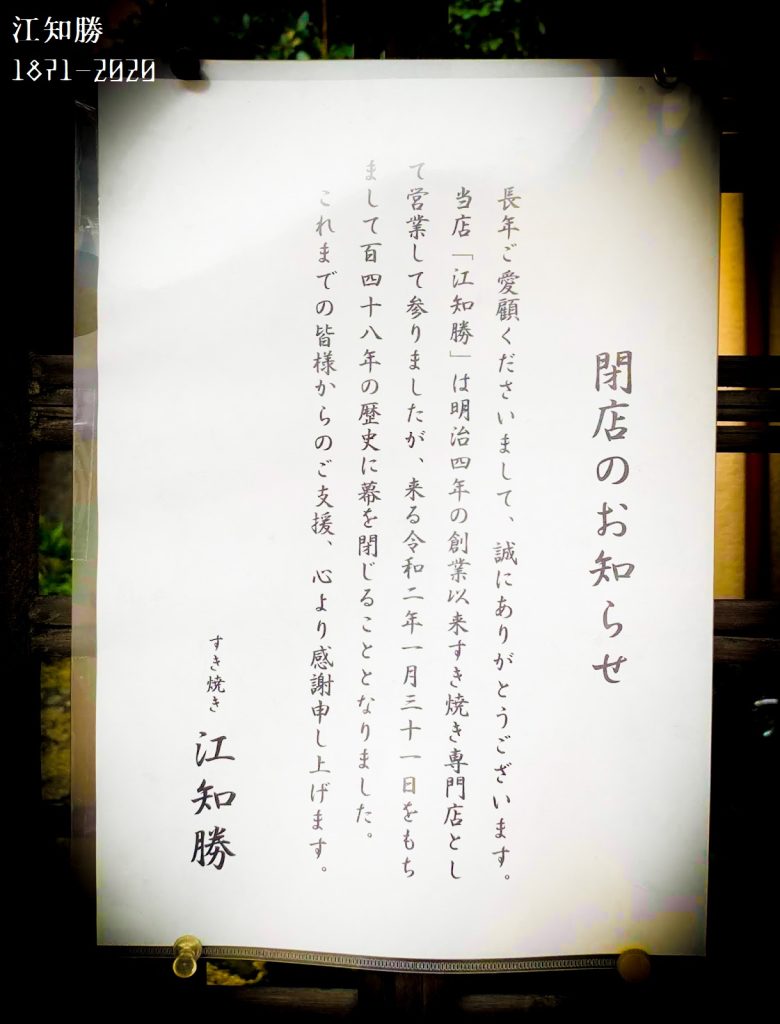 江知勝
1871-2020
閉店のお知らせ
長年ご愛顧くださいまして、誠にありがとうございます。
当店「江知勝」は明治四年の創業以来すき焼き専門店とし
て営業して参りましたが、来る令和二年一月三十一日をもち
まして百四十八年の歴史に幕を閉じることとなりました。
これまでの皆様からのご支援、心より感謝申し上げます。
すき焼き 江知勝